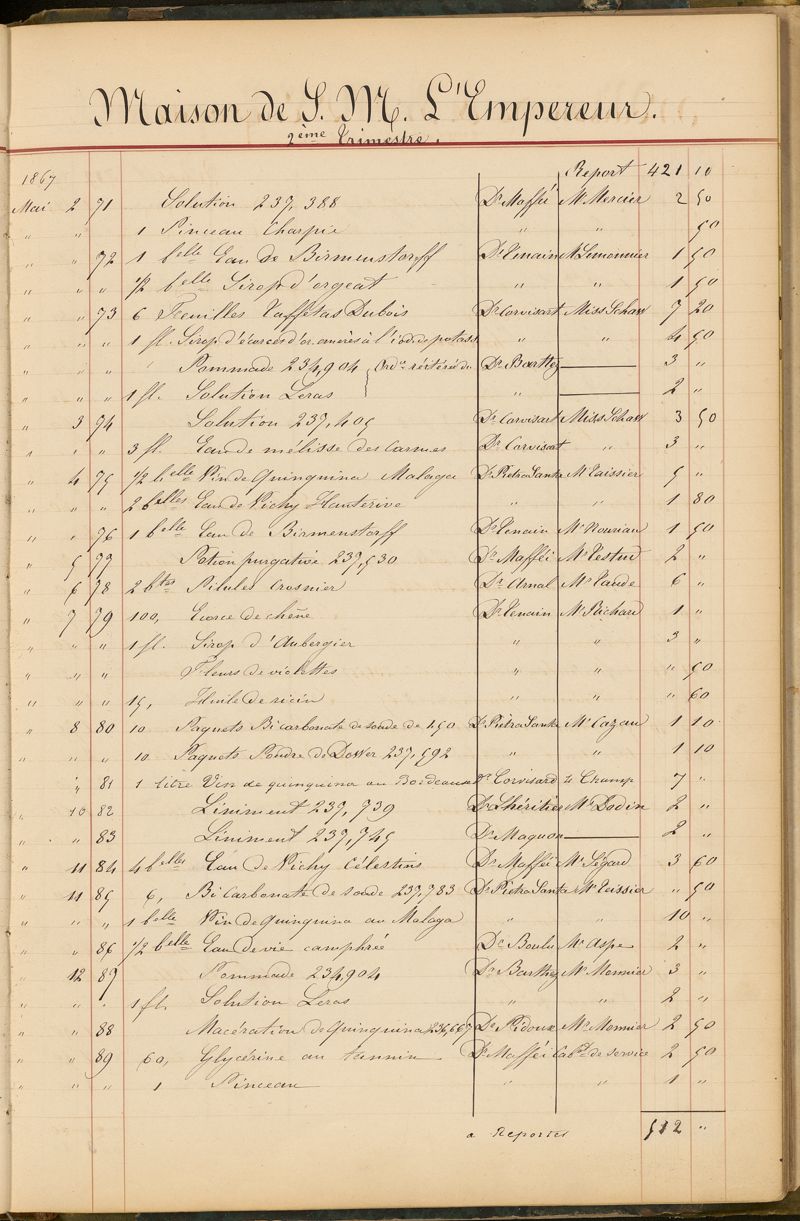 Maison de S. M. L'Empereur.
2ème Trimestre.
1867 Report 421 10
Mai 2 71 Solution 237,388 Dr Mafféi Mr Mercier 2 50
" " 1 Pinceau Charpie " " 50
" " 72 1 belle Eau de Birmenstorff Dr Tenain Mr Simonnier 1 50
" " " 1/2 belle Sirop d'orgeat " " 1 50
" " 73 6 Feuilles Taffetas Dubois Dr Corvisart Miss Schaw 7 20
" " " 1 fl. Sirop d'écorces d'or. amères à l'iod. de potass " " 4 50
" " " Pommade 234,904 Ordce réitérée du Dr Barthez 3 "
" " " 1 fl. Solution Leras " 2 "
" 3 74 Solution 237,405 Dr Corvisart Miss Schaw 3 50
" " " 3 fl. Eau de mélisse des Carmes Dr Corvisart " 3 "
" 4 75 1/2 belle Vin de Quinquina Malaga Dr Pietra Santa Mr Teissier 5 "
" " " 2 belles Eau de Vichy Hauterive " " 1 80
" " 76 1 belle Eau de Birmenstorff Dr Tenain Mr Nourian 1 50
" 5 77 Potion purgative 237,530 Dr Mafféi Mr Testud 2 "
" 6 78 2 btes Pilules Crosnier Dr Arnal Mr Laude 6 "
" 7 79 100, Ecorce de chêne Dr Tenain Mr Richard 1 "
" " " 1 fl. Sirop d'Aubergier " " 3 "
" " " Fleurs de violettes " " " 50
" " " 15, Huile de ricin " " " 60
" 8 80 10 Paquets Bicarbonate de soude de 1,50 Dr Pietra Santa Mr Cazau 1 10
" " " 10 Paquets Poudre de Dower 237,592 " " 1 10
" 81 1 litre Vin de quinquina au Bordeaux Dr Corvisard Champ 7 "
" 10 82 Liniment 237,739 Dr Lhéritier Mr Bodin 2 "
" " 83 Liniment 237,745 Dr Magnon 2 "
" 11 84 4 belles Eau de Vichy Célestins Dr Mafféi Mr Ségard 3 60
" 11 85 6, Bicarbonate de soude 237,783 Dr Pietra Santa Mr Teissier " 50
" " " 1 belle Vin de Quinquina au Malaga " " 10 "
" " 86 1/2 belle Eau de vie camphrée Dr Boulu Mr Aspe 2 "
" 12 87 Pommade 234,904 Dr Barthez Mr Monnier 3 "
" " " 1 fl. Solution Leras " " 2 "
" " 88 Macération de Quinquina 236,667 Dr Pidoux Mr Monnier 2 50
" " 89 60, Glycérine au tannin Dr Mafféi Cabt de service 2 50
" " " 1 Pinceau " " 1 "
a Reporter 512 "